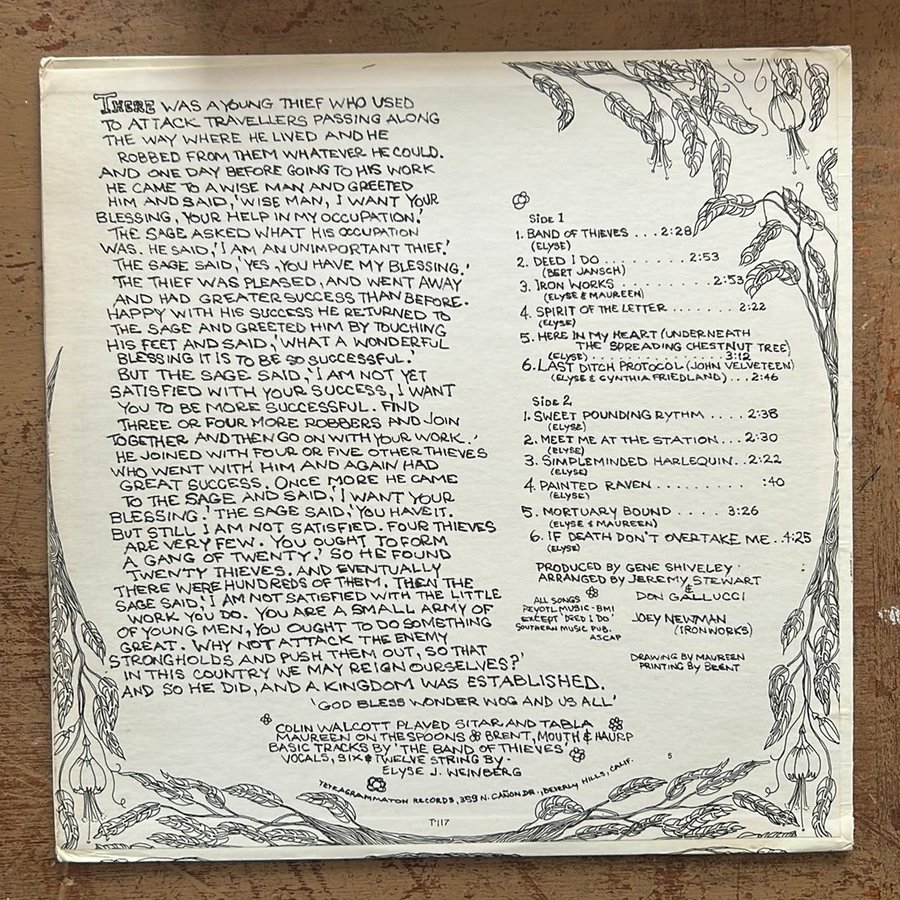 THERE WAS A YOUNG THIEF WHO USED
TO ATTACK TRAVELLERS PASSING ALONG
THE WAY WHERE HE LIVED AND HE
ROBBED FROM THEM WHATEVER HE COULD.
AND ONE DAY BEFORE GOING TO HIS WORK
HE CAME TO A WISE MAN AND GREETED
HIM AND SAID, 'WISE MAN, I WANT YOUR
BLESSING, YOUR HELP IN MY OCCUPATION.'
THE SAGE ASKED WHAT HIS OCCUPATION
WAS. HE SAID, 'I AM AN UNIMPORTANT THIEF.'
THE SAGE SAID, 'YES, YOU HAVE MY BLESSING.'
THE THIEF WAS PLEASED, AND WENT AWAY
AND HAD GREATER SUCCESS THAN BEFORE.
HAPPY WITH HIS SUCCESS HE RETURNED TO
THE SAGE AND GREETED HIM BY TOUCHING
HIS FEET AND SAID, 'WHAT A WONDERFUL
BLESSING IT IS TO BE SO SUCCESSFUL.'
BUT THE SAGE SAID, 'I AM NOT YET
SATISFIED WITH YOUR SUCCESS, I WANT
YOU TO BE MORE SUCCESSFUL. FIND
THREE OR FOUR MORE ROBBERS AND JOIN
TOGETHER AND THEN GO ON WITH YOUR WORK.'
HE JOINED WITH FOUR OR FIVE OTHER THIEVES
WHO WENT WITH HIM AND AGAIN HAD
GREAT SUCCESS. ONCE MORE HE CAME
TO THE SAGE AND SAID, 'I WANT YOUR
BLESSING.' THE SAGE SAID, 'YOU HAVE IT.
BUT STILL I AM NOT SATISFIED. FOUR THIEVES
ARE VERY FEW. YOU OUGHT TO FORM
A GANG OF TWENTY.' SO HE FOUND
TWENTY THIEVES. AND EVENTUALLY
THERE WERE HUNDREDS OF THEM. THEN THE
SAGE SAID, 'I AM NOT SATISFIED WITH THE LITTLE
WORK YOU DO. YOU ARE A SMALL ARMY OF
OF YOUNG MEN, YOU OUGHT TO DO SOMETHING
GREAT. WHY NOT ATTACK THE ENEMY
STRONGHOLDS AND PUSH THEM OUT, SO THAT
IN THIS COUNTRY WE MAY REIGN OURSELVES?'
AND SO HE DID, AND A KINGDOM WAS ESTABLISHED.
'GOD BLESS WONDER WOG AND US ALL'
COLIN WALCOTT PLAYED SITAR AND TABLA
MAUREEN ON THE SPOONS & BRENT, MOUTH & HAURP
BASIC TRACKS BY 'THE BAND OF THIEVES'
VOCALS, SIX & TWELVE STRING BY-
ELYSE J. WEINBERG
Side 1
1. BAND OF THIEVES ... 2:28
(ELYSE)
2. DEED I DO ........ 2:53
(BERT JANSCH)
3. IRON WORKS .......... 2:53
(ELYSE & MAUREEN)
4. SPIRIT OF THE LETTER ........ 2:22
(ELYSE)
5. HERE IN MY HEART (UNDERNEATH
THE SPREADING CHESTNUT TREE)
(ELYSE) ................. 3:12
6. LAST DITCH PROTOCOL (JOHN VELVETEEN)
(ELYSE & CYNTHIA FRIEDLAND) ... 2:46
Side 2
1. SWEET POUNDING RYTHM .... 2:38
(ELYSE)
2. MEET ME AT THE STATION... 2:30
(ELYSE)
3. SIMPLEMINDED HARLEQUIN.. 2:22
(ELYSE)
4. PAINTED RAVEN ......... :40
(ELYSE)
5. MORTUARY BOUND .... 3:26
(ELYSE & MAUREEN)
6. IF DEATH DON'T OVERTAKE ME.. 4:25
(ELYSE)
PRODUCED BY GENE SHIVELEY
ARRANGED BY JEREMY STEWART
&
DON GALLUCCI
JOEY NEWMAN
(IRONWORKS)
ALL SONGS
PEYOTL MUSIC - BMI
EXCEPT 'DEED I DO'
SOUTHERN MUSIC PUB.
ASCAP
DRAWING BY MAUREEN
PRINTING BY BRENT
5
TETRAGRAMMATON RECORDS, 359 N. CAÑON DR., BEVERLY HILLS, CALIF.
T-117